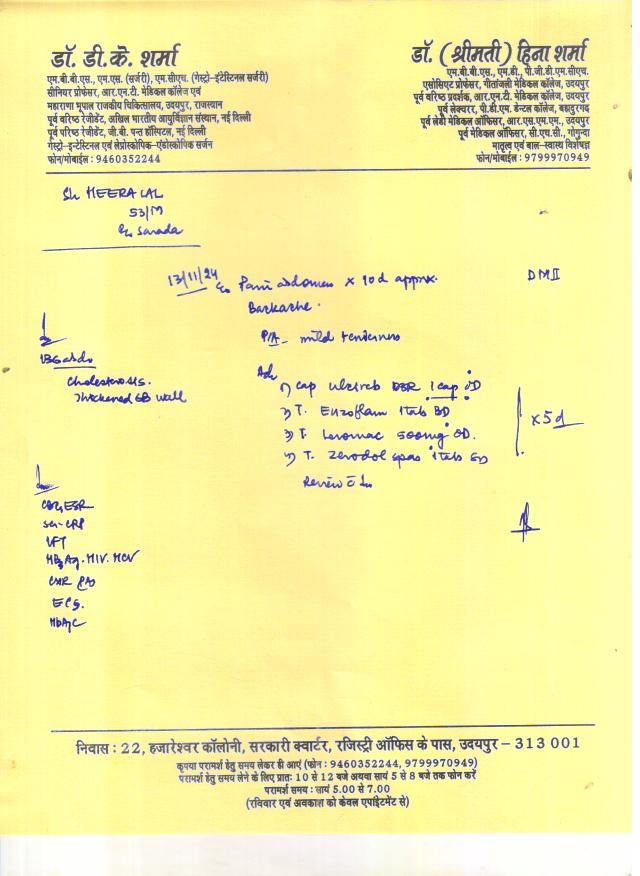 डॉ. डी.के. शर्मा
एम.बी.बी.एस., एम.एस. (सर्जरी), एम.सीएच. (गेस्ट्रो-इंटेस्टिनल सर्जरी)
सीनियर प्रोफेसर, आर.एन.टी. मेडिकल कॉलेज एवं
महाराणा भूपाल राजकीय चिकित्सालय, उदयपुर, राजस्थान
पूर्व वरिष्ठ रेजीडेंट, अखिल भारतीय आयुर्विज्ञान संस्थान, नई दिल्ली
पूर्व वरिष्ठ रेजीडेंट, जी.बी. पन्त हॉस्पिटल, नई दिल्ली
गेस्ट्रो-इन्टेस्टिनल एवं लेप्रोस्कोपिक-एंडोस्कोपिक सर्जन
फोन/मोबाईल : 9460352244
डॉ. (श्रीमती) हिना शर्मा
एम.बी.बी.एस., एम.डी., पी.जी.डी.एम.सीएच.
एसोसिएट प्रोफेसर, गीतांजली मेडिकल कॉलेज, उदयपुर
पूर्व वरिष्ठ प्रदर्शक, आर.एन.टी. मेडिकल कॉलेज, उदयपुर
पूर्व लेक्चरर, पी.डी.एम. डेन्टल कॉलेज, बहादुरगढ़
पूर्व लेडी मेडिकल ऑफिसर, आर.एस.एम.एम., उदयपुर
पूर्व मेडिकल ऑफिसर, सी.एच.सी., गोगुन्दा
मातृत्व एवं बाल-स्वास्थ्य विशेषज्ञ
फोन/मोबाईल : 9799970949
Sh HEERA LAL
53/M
Sarada
13/11/24 Pain abdomen x 10d approx.
DM II
Backache.
P/A - mild tenderness
USG abdo
Cholesterosis.
Thickened GB wall
Adv
1) Cap DSR 1 cap OD
2) T. Enzoflam 1 tab BD
3) T. Levomac 500mg OD.
4) T. Zerodol spas 1 tab
x 5d
Review
CBC, ESR
Sr. CRP
LFT
HBsAg. HIV. HCV
CXR PA
ECG.
HbA1C
निवास : 22, हजारेश्वर कॉलोनी, सरकारी क्वार्टर, रजिस्ट्री ऑफिस के पास, उदयपुर - 313 001
कृपया परामर्श हेतु समय लेकर ही आएं (फोन : 9460352244, 9799970949)
परामर्श हेतु समय लेने के लिए प्रातः 10 से 12 बजे अथवा सायं 5 से 8 बजे तक फोन करें
परामर्श समय : सायं 5.00 से 7.00
(रविवार एवं अवकाश को केवल एपाईंटमेंट से)